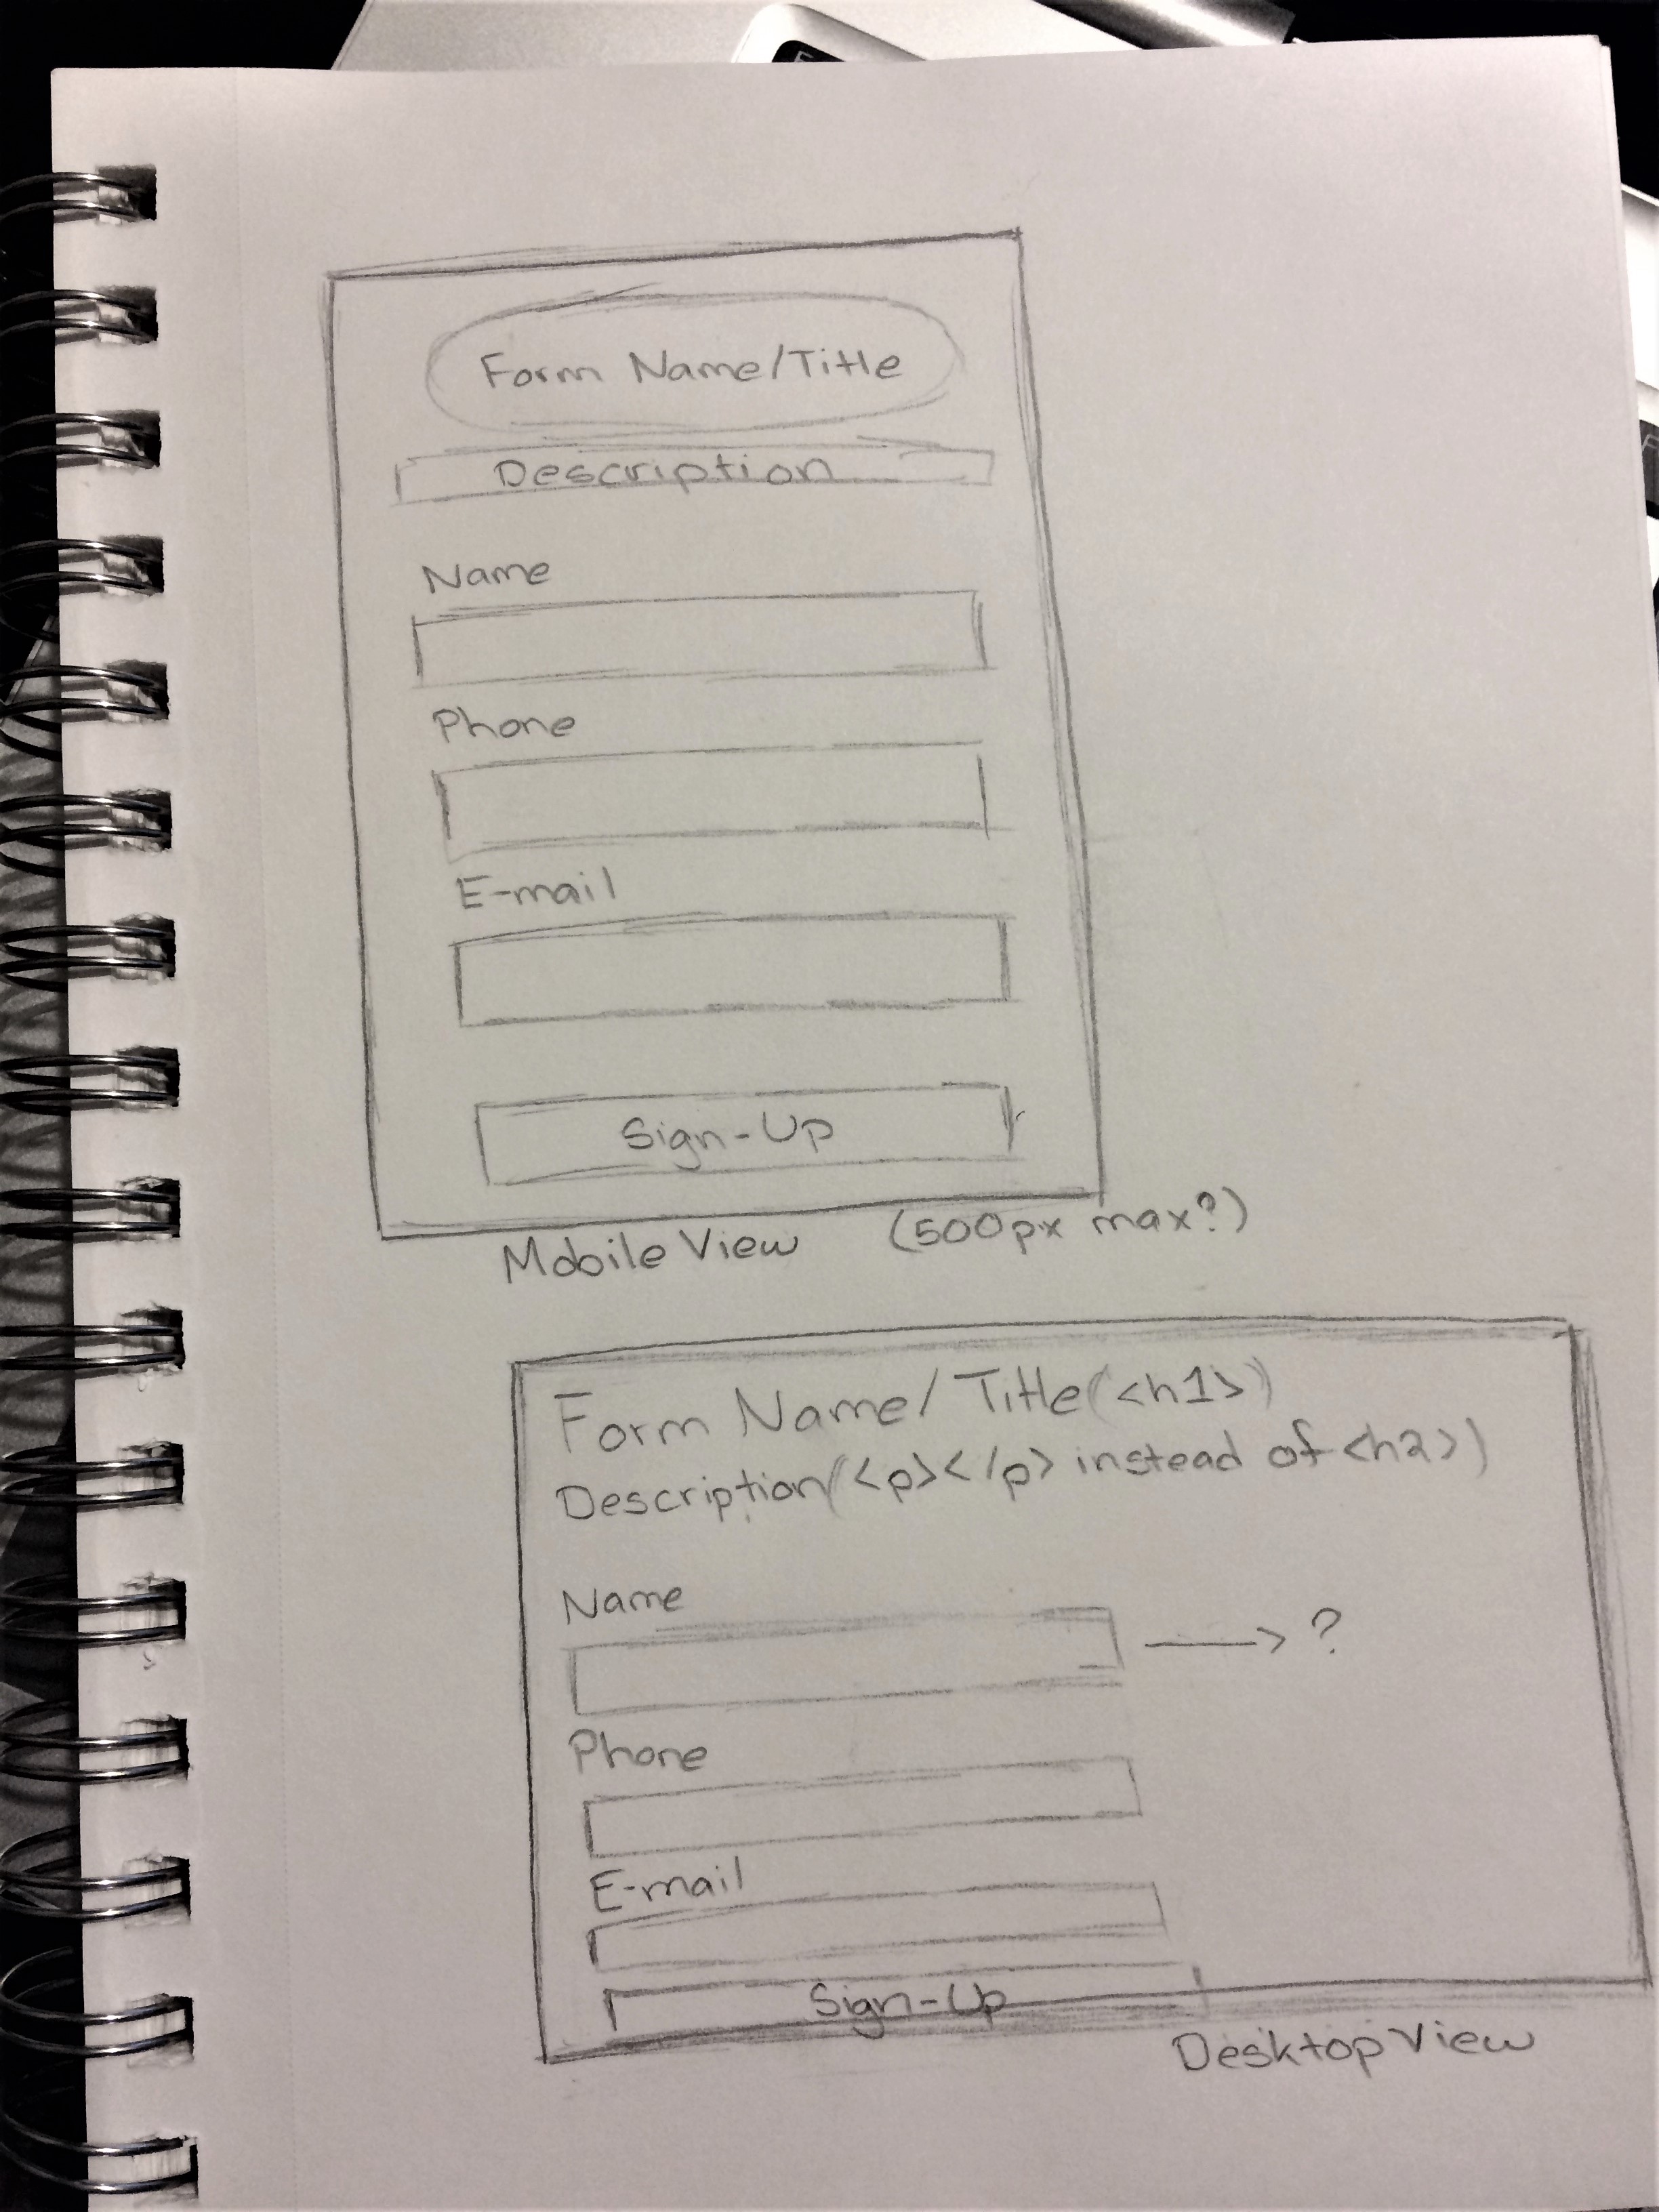 Form Name/Title
Description
Name
Phone
E-mail
Sign-Up
Mobile View (500px max?)
Form Name/Title(<h1>)
Description(<p></p> instead of <h2>)
Name
?
Phone
E-mail
Sign-Up
Desktop View